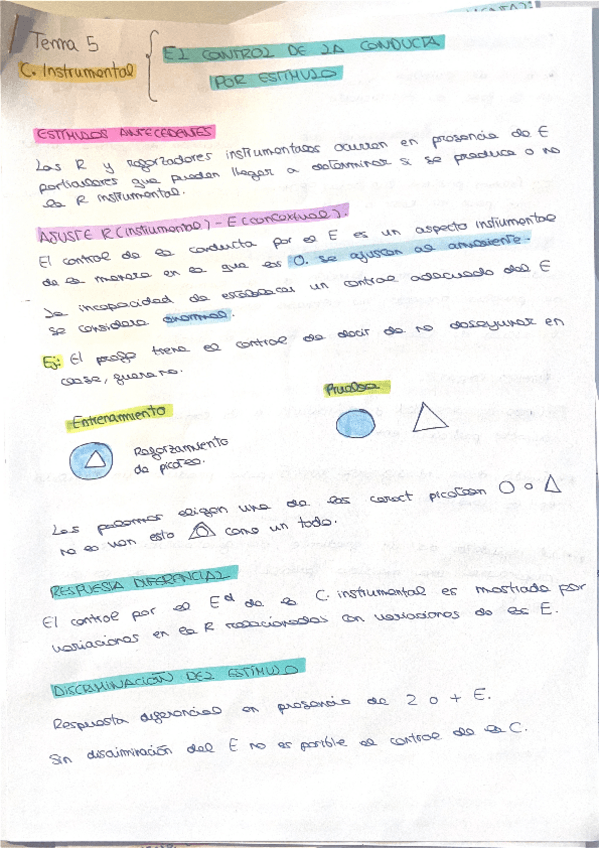 Tema 5
C. Instrumental
EL CONTROL DE LA CONDUCTA
POR ESTÍMULO
ESTÍMULOS ANTECEDENTES
Las R y reforzadores instrumentales ocurren en presencia de E
particulares que pueden llegar a determinar si se produce o no
la R instrumental.
AJUSTE R (instrumental) - E (contextual).
El control de la conducta por el E es un aspecto instrumental
de la manera en la que los O. se ajustan al ambiente.
La incapacidad de establecer un control adecuado del E
se considera anormal.
Ej: El profe tiene el control de decir de no desayunar en
clase, guarano.
Entrenamiento
Prueba
Reforzamiento
de picoteo.
Las palomas eligen una de las caract picotean O o △
no lo ven esto como un todo.
RESPUESTA DIFERENCIAL
El control por el Ed de la C. instrumental es mostrado por
variaciones en la R relacionadas con variaciones de los E.
DISCRIMINACIÓN DEL ESTÍMULO
Respuesta diferencial en presencia de 2 o + E.
Sin discriminación del E no es posible el control de la C.